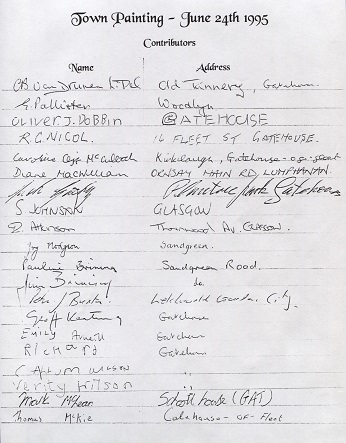 Town Painting - June 24th 1995
Contributors
Name Address
Old Tannery, Gatehouse.
G. Pallister Woodlyn
OLIVER J. DOBBIN GATEHOUSE
R.G. NICOL. 16 FLEET ST GATEHOUSE.
Caroline McCulloch Kirkclaugh, Gatehouse-of-Fleet
Diane MacMillan MAIN RD, LUMPHANAN.
S JOHNSON GLASGOW
D. Atkinson Thornwood Av. Glasgow.
Joy Hodgson Sandgreen.
Pauline Binning Sandgreen Road.
Jim Binning do.
Letchworth Garden City.
Geoff Gatehouse
Emily Gatehouse
Richard Gatehouse
CALLUM WILSON "
Verity Wilson "
Mark McLean School house (GAT)
Thomas McKie Gatehouse-OF-Fleet